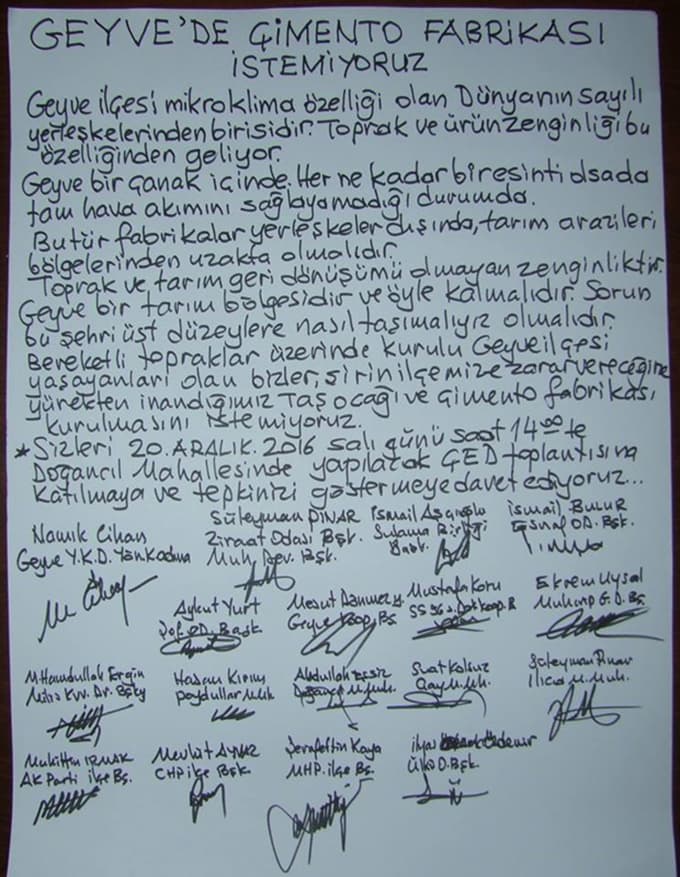 GEYVE'DE ÇİMENTO FABRİKASI
İSTEMİYORUZ
Geyve ilçesi mikroklima özelliği olan Dünyanın sayılı
yerleşkelerinden birisidir. Toprak ve ürün zenginliği bu
özelliğinden geliyor.
Geyve bir çanak içinde. Her ne kadar bir esinti olsada
tam hava akımını sağlayamadığı durumda.
Bu tür fabrikalar yerleşkeler dışında, tarım arazileri
bölgelerinden uzakta olmalıdır.
Toprak ve tarım geri dönüşümü olmayan zenginliktir.
Geyve bir tarım bölgesidir ve öyle kalmalıdır. Sorun
bu şehri üst düzeylere nasıl taşımalıyız olmalıdır.
Bereketli topraklar üzerinde kurulu Geyve ilçesi
yaşayanları olan bizler, şirin ilçemize zarar vereceğine
yürekten inandığımız Taş ocağı ve çimento fabrikası
kurulmasını istemiyoruz.
* Sizleri 20.ARALIK.2016 salı günü saat 14 00 te
Doğancıl Mahallesinde yapılacak ÇED toplantısına
katılmaya ve tepkinizi göstermeye davet ediyoruz...
Namık Cihan
Geyve Y.K.D.
Süleyman PINAR
Ziraat Odası Bşk.
Muh. Dev. Bşk.
İsmail
Sulama Birliği
Başk.
İsmail BULUR
Esnaf OD. Bşk.
Aykut Yurt
Şof. OD. Başk.
Mesut
Geyve Koop. Bş.
Mustafa Koru
Ekrem Uysal
Muharip G.D. Bş.
M. Hamdullah Ergin
Hasan
Muh.
Abdullah
M. Muh.
Suat
M. Muh.
Süleyman Pınar
Ilıca M. Muh.
Muhittin IRMAK
AK Parti ilçe Bş.
Mevlüt AYNAZ
CHP ilçe Bşk.
Şerafettin Kaya
MHP. ilçe Bş.
İlyas Özdemir
Ülkü O. Bşk.